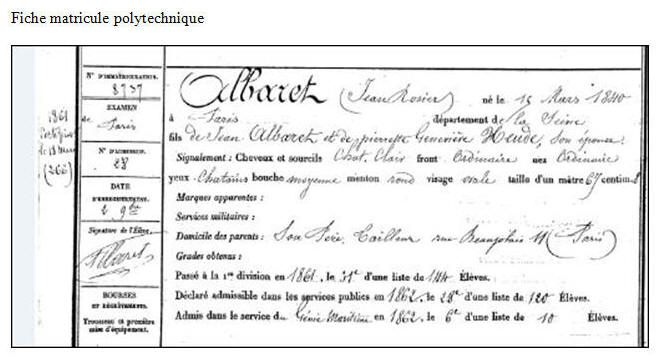 Fiche matricule polytechnique
N° D'IMMATRICULATION.
8737
EXAMEN
de Paris
N° D'ADMISSION.
28
DATE
D'ENREGISTREMENT.
Signature de l'Élève.
Albaret
BOURSES
ET RECRUTEMENTS.
Trousseau et première
mise d'équipement.
1861
le 18 Mars
(266)
Albaret (Jean Rosier) né le 15 Mars 1840
à Paris département de la Seine
fils de Jean Albaret et de pierrette Geneviève Heude, son épouse.
Signalement : Cheveux et sourcils Chat. Clair front Ordinaire nez Ordinaire
yeux Chatains bouche moyenne menton rond visage ovale taille d'un mètre 67 centim.
Marques apparentes :
Services militaires :
Domicile des parents : Son Père, Tailleur rue Beaujolais 11 (Paris)
Grades obtenus :
Passé à la 1re division en 1861. le 31e d'une liste de 144 Élèves.
Déclaré admissible dans les services publics en 1862, le 28e d'une liste de 120 Élèves.
Admis dans le service du Génie Maritime en 1862, le 6e d'une liste de 10 Élèves.